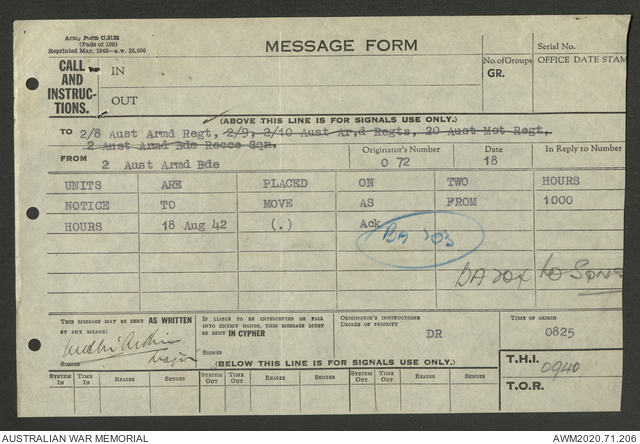 Army Form C.2136
(Pads of 100)
Reprinted May, 1942—a.w. 25,000
MESSAGE FORM
Serial No.
CALL AND INSTRUC-TIONS.
IN
OUT
No.of Groups
GR.
OFFICE DATE STAM
(ABOVE THIS LINE IS FOR SIGNALS USE ONLY.)
TO 2/8 Aust Armd Regt, 2/9, 2/10 Aust Ar,d Regts, 20 Aust Mot Regt,
2 Aust Armd Bde Recce Sqn.
FROM 2 Aust Armd Bde
Originator's Number
O 72
Date
18
In Reply to Number
UNITS ARE PLACED ON TWO HOURS
NOTICE TO MOVE AS FROM 1000
HOURS 18 Aug 42 (.) Ack
BA 203
THIS MESSAGE MAY BE SENT AS WRITTEN
BY ANY MEANS:
SIGNED
Major
IF LIABLE TO BE INTERCEPTED OR FALL
INTO ENEMY HANDS, THIS MESSAGE MUST
BE SENT IN CYPHER
SIGNED
ORIGINATOR'S INSTRUCTIONS
DEGREE OF PRIORITY
DR
TIME OF ORIGIN
0825
(BELOW THIS LINE IS FOR SIGNALS USE ONLY.)
T.H.I. 0940
T.O.R.
SYSTEM IN TIME IN READER SENDER SYSTEM OUT TIME OUT READER SENDER SYSTEM OUT TIME OUT READER SENDER
AUSTRALIAN WAR MEMORIAL
AWM2020.71.206